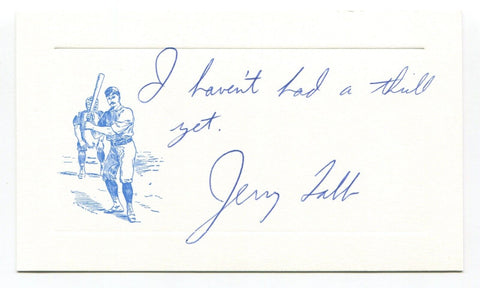 I haven't had a thrill
yet.
Jerry Talb